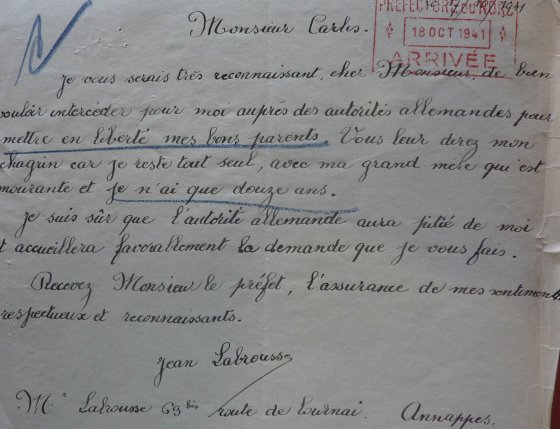 Monsieur Carles.
PRÉFECTURE DU NORD
18 OCT 1941
ARRIVÉE
Je vous serais très reconnaissant, cher Monsieur, de bien
vouloir intercéder pour moi auprès des autorités allemandes pour
mettre en liberté mes bons parents. Vous leur direz mon
chagrin car je reste tout seul, avec ma grand mère qui est
mourante et je n'ai que douze ans.
Je suis sûr que l'autorité allemande aura pitié de moi
et accueillera favorablement la demande que je vous fais.
Recevez Monsieur le préfet, l'assurance de mes sentiments
respectueux et reconnaissants.
Jean Labrousse
Mr Labrousse 69 bis route de Tournai. Annappes.